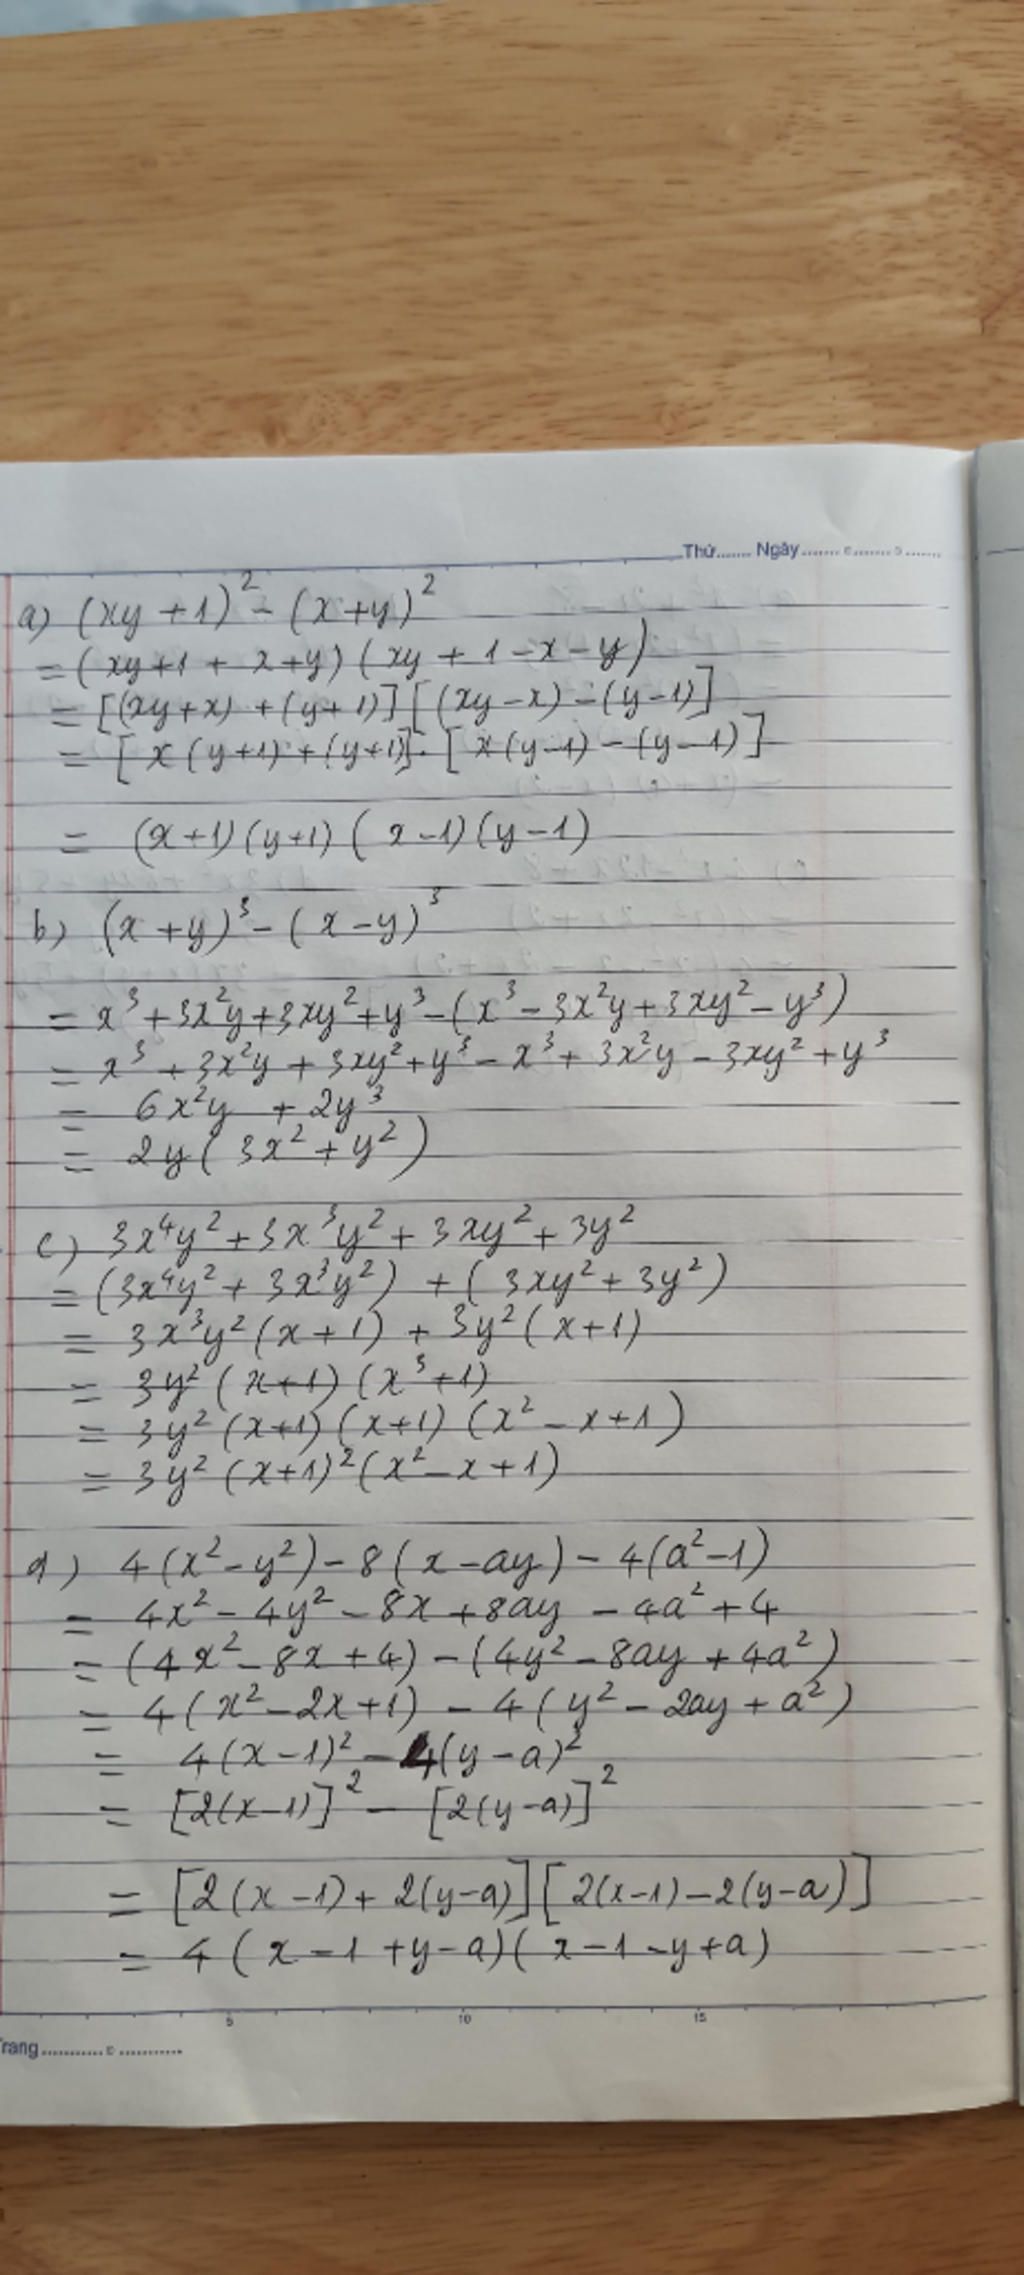 Thứ....... Ngày ....................
a) (xy + 1)² - (x + y)²
= (xy + 1 + x + y) (xy + 1 - x - y)
= [(xy + x) + (y + 1)] [(xy - x) - (y - 1)]
= [x (y + 1) + (y + 1)] . [x (y - 1) - (y - 1)]
= (x + 1) (y + 1) (x - 1) (y - 1)
b) (x + y)³ - (x - y)³
= x³ + 3x²y + 3xy² + y³ - (x³ - 3x²y + 3xy² - y³)
= x³ + 3x²y + 3xy² + y³ - x³ + 3x²y - 3xy² + y³
= 6x²y + 2y³
= 2y (3x² + y²)
c) 3x⁴y² + 3x³y² + 3xy² + 3y²
= (3x⁴y² + 3x³y²) + (3xy² + 3y²)
= 3x³y² (x + 1) + 3y² (x + 1)
= 3y² (x + 1) (x³ + 1)
= 3y² (x + 1) (x + 1) (x² - x + 1)
= 3y² (x + 1)² (x² - x + 1)
d) 4 (x² - y²) - 8 (x - ay) - 4 (a² - 1)
= 4x² - 4y² - 8x + 8ay - 4a² + 4
= (4x² - 8x + 4) - (4y² - 8ay + 4a²)
= 4 (x² - 2x + 1) - 4 (y² - 2ay + a²)
= 4 (x - 1)² - 4 (y - a)²
= [2(x - 1)]² - [2(y - a)]²
= [2(x - 1) + 2(y - a)] [2(x - 1) - 2(y - a)]
= 4 (x - 1 + y - a) (x - 1 - y + a)
5 10 15
rang ....................